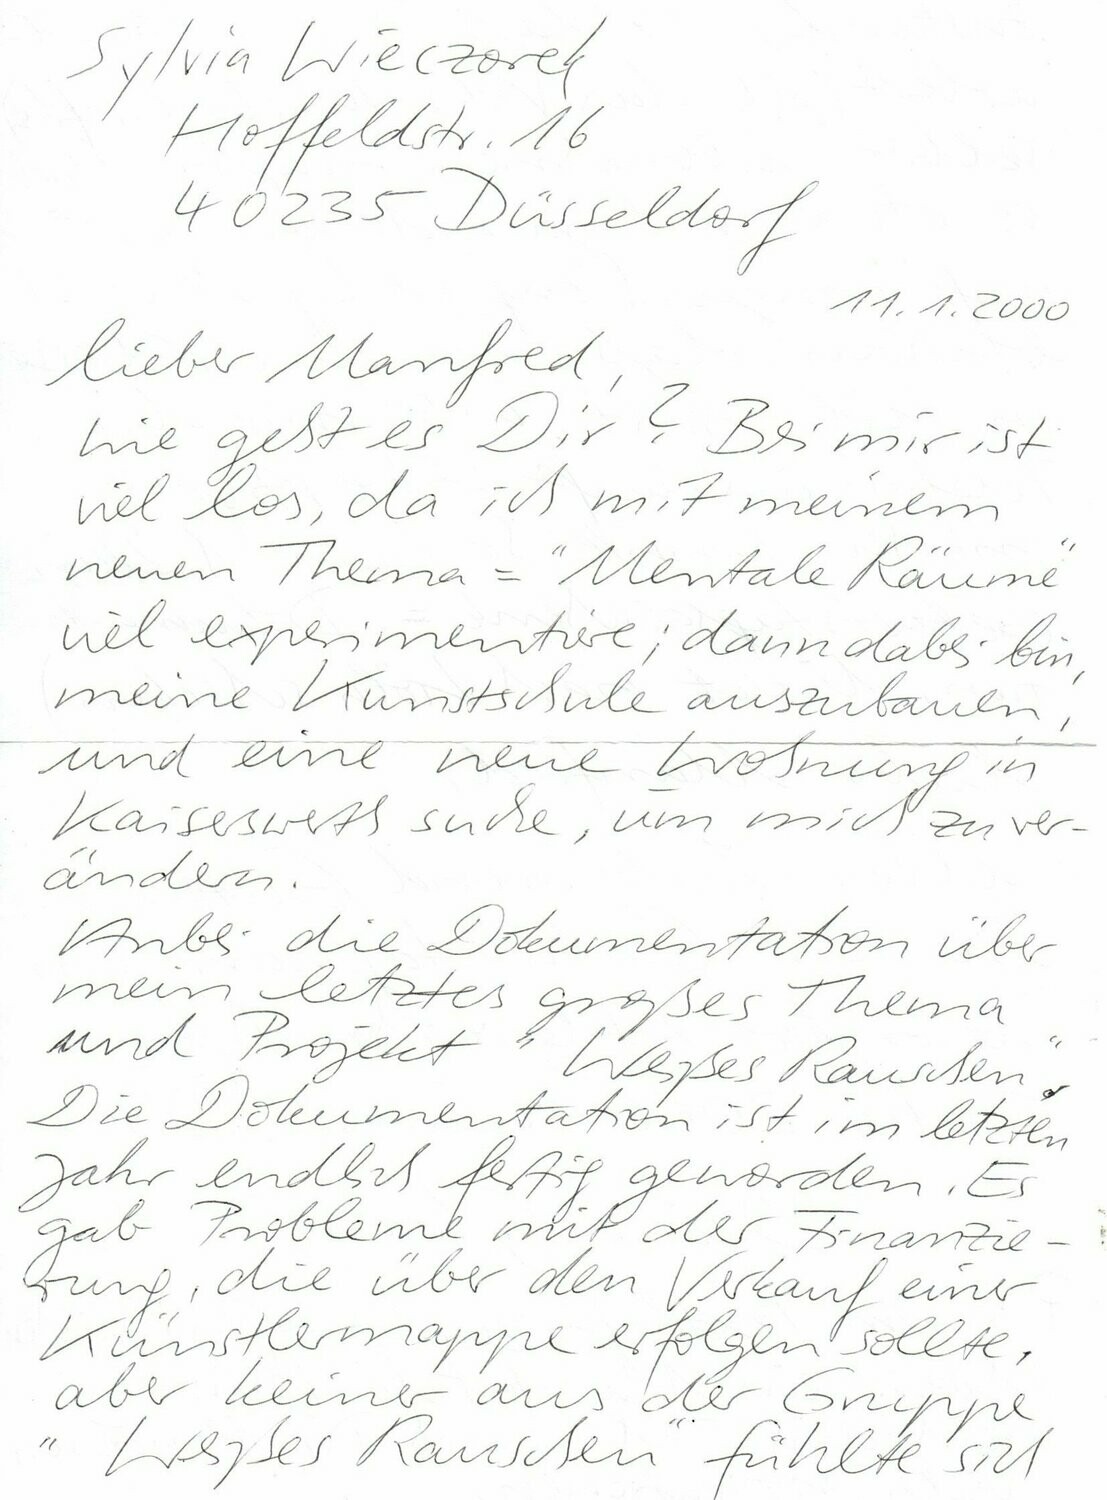 Sylvia Wieczorek
Hoffeldstr. 16
40235 Düsseldorf
11.1.2000
lieber Manfred,
wie geht es Dir? Bei mir ist
viel los, da ich mit meinem
neuen Thema = "Mentale Räume"
viel experimentiere; dann dabei bin,
meine Kunstschule auszubauen,
und eine neue Wohnung in
Kaiserswerth suche, um mich zu ver-
ändern.
Anbei die Dokumentation über
mein letztes großes Thema
und Projekt "Weißes Rauschen".
Die Dokumentation ist im letzten
Jahr endlich fertig geworden. Es
gab Probleme mit der Finanzie-
rung, die über den Verkauf einer
Künstlermappe erfolgen sollte,
aber keiner aus der Gruppe
"Weißes Rauschen" fühlte sich